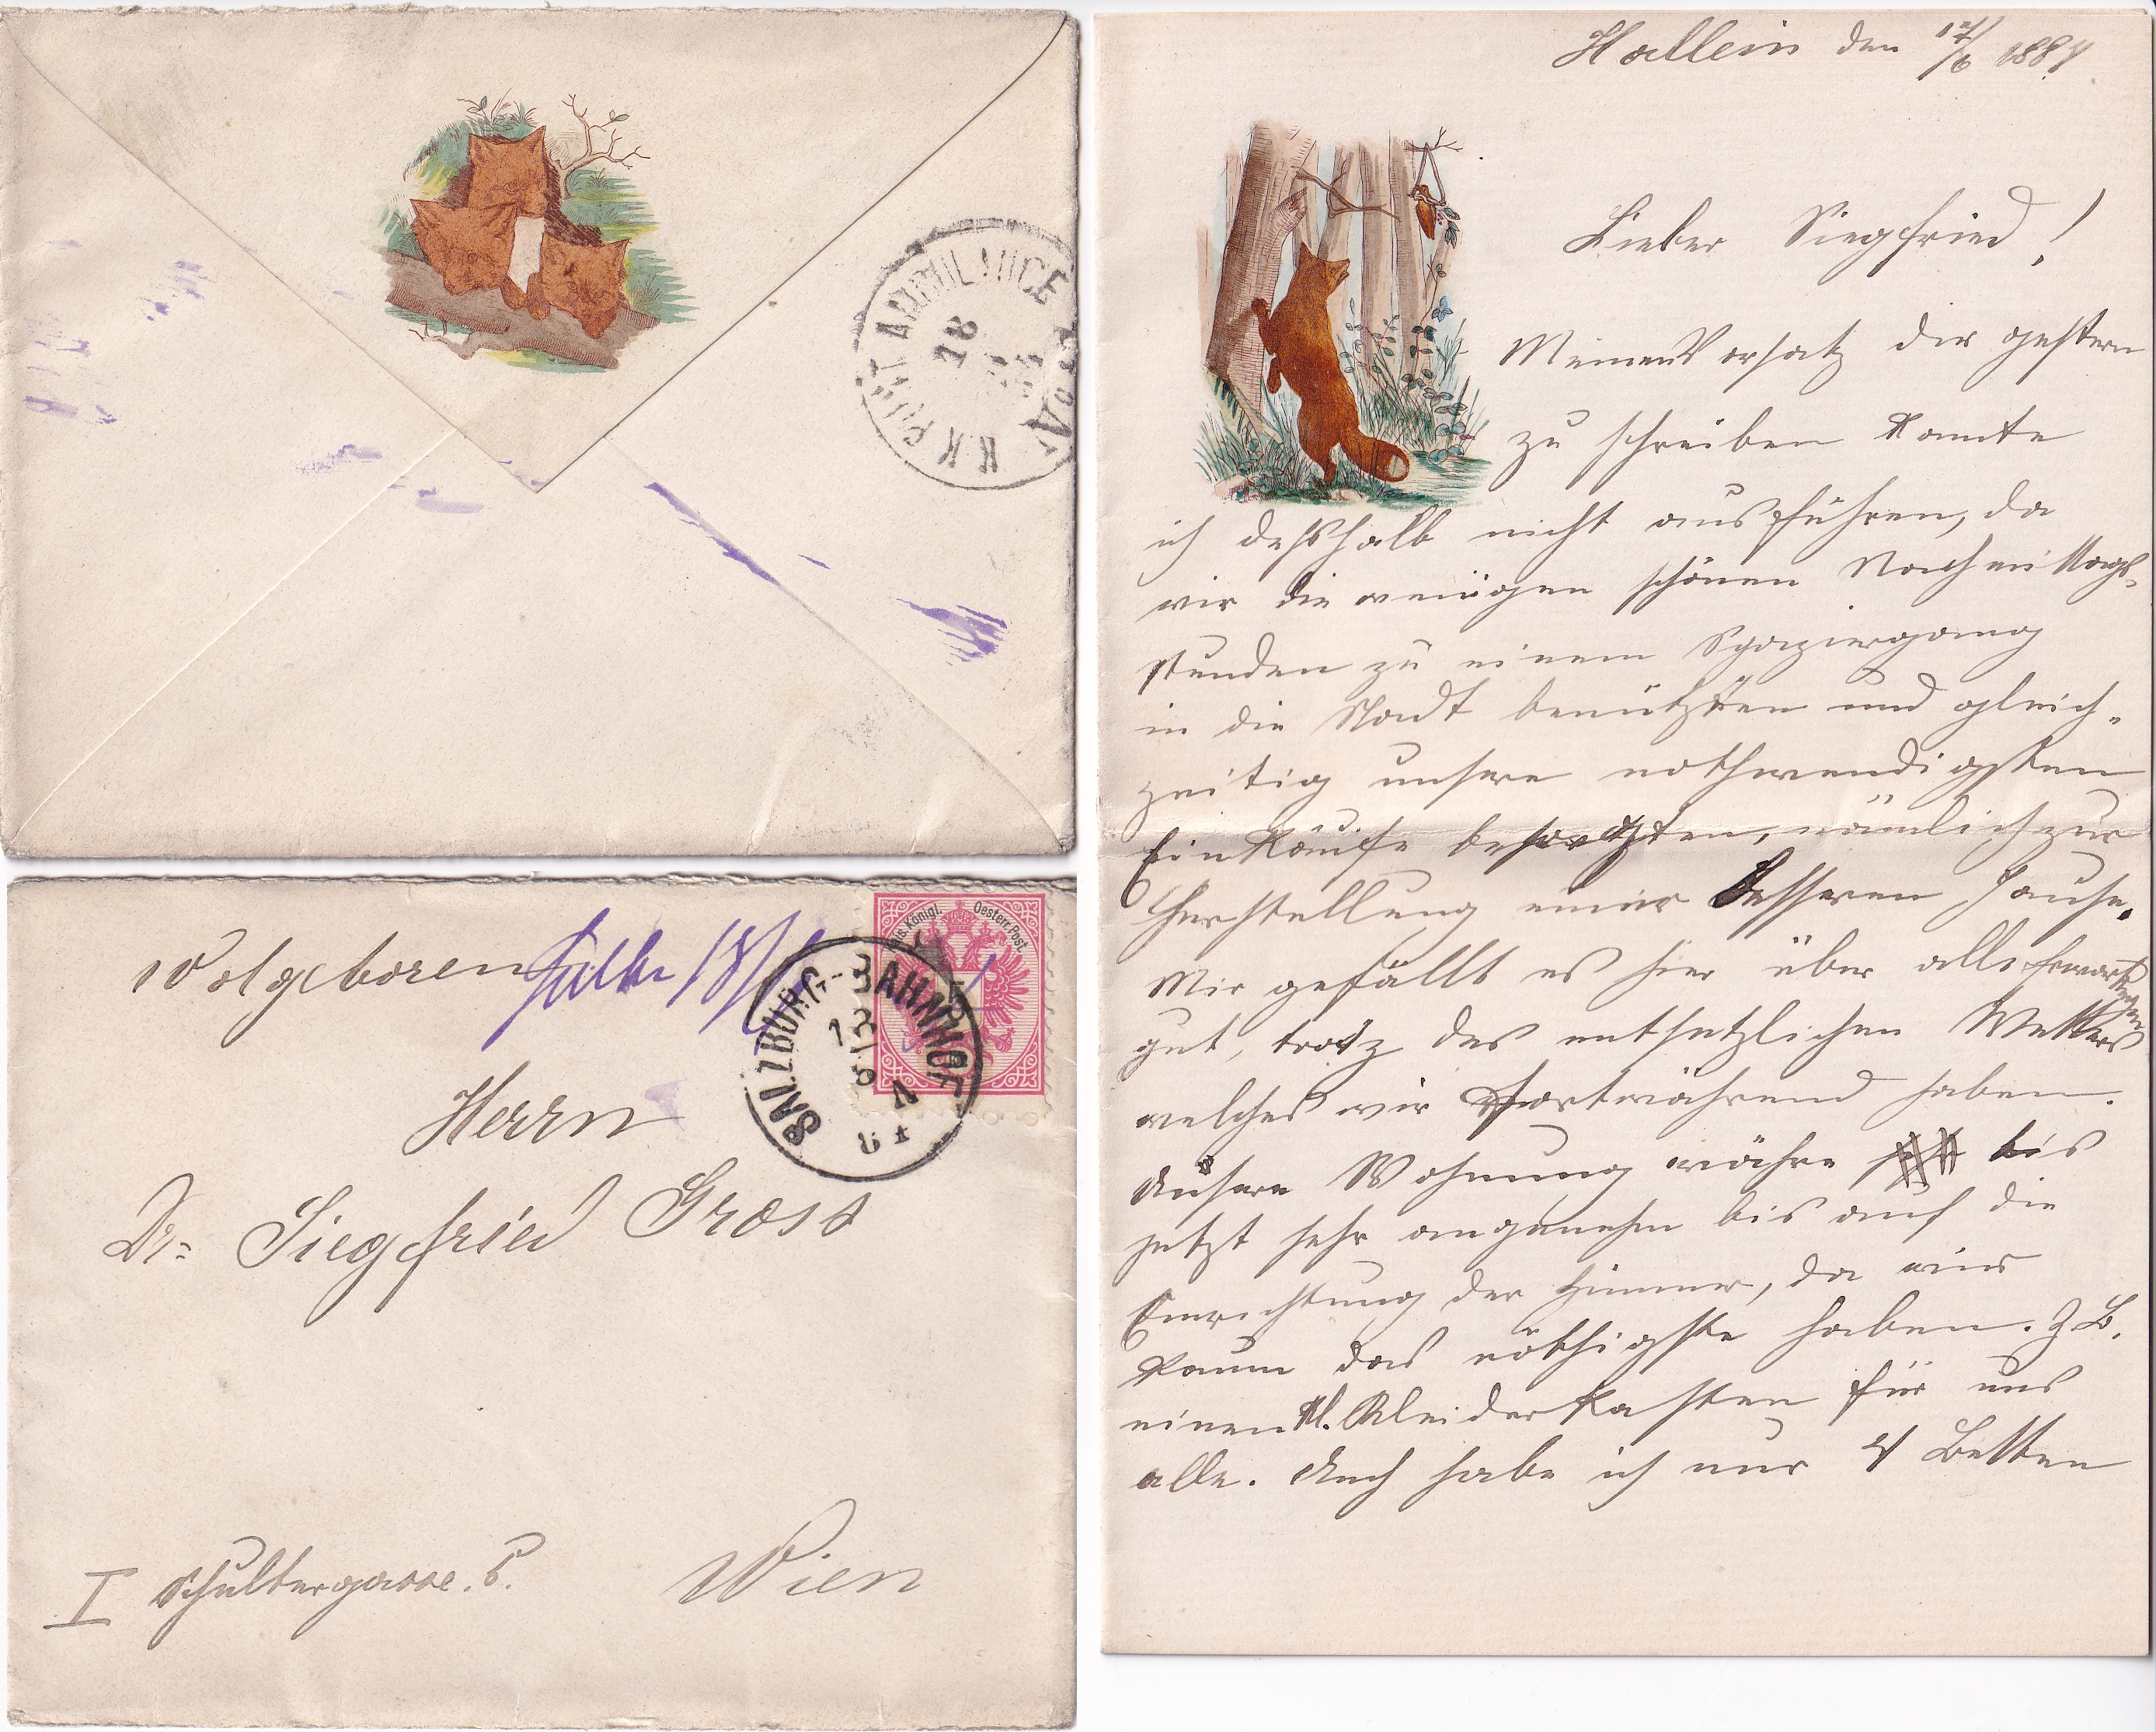 K.K. POST AMBULANCE
18
Wolgeboren
18/
Kais. Königl. Oesterr. Post.
SALZBURG-BAHNHOF
Herrn
Dr. Siegfried Gross
I Schultergasse. 5.
Wien
Hallein den 17/6 1884
Lieber Siegfried!
Meinen Vorsatz dir gestern
zu schreiben konnte
ich deßhalb nicht ausführen, da
wir die wenigen schönen Nachmittags-
stunden zu einem Spaziergang
in die Stadt benützten und gleich-
zeitig unsere nothwendigsten
Einkäufe besorgten, nämlich zur
Herstellung einer besseren Jause.
Mir gefällt es hier über alle Erwartungen
gut, trotz des entsetzlichen Wetters
welches wir fortwährend haben.
Unsere Wohnung währe bis
jetzt sehr angenehm bis auf die
Einrichtung der Zimmer, da wir
kaum das nöthigste haben. Z B.
einen kl. Kleiderkasten für uns
alle. Auch habe ich nur 4 Betten